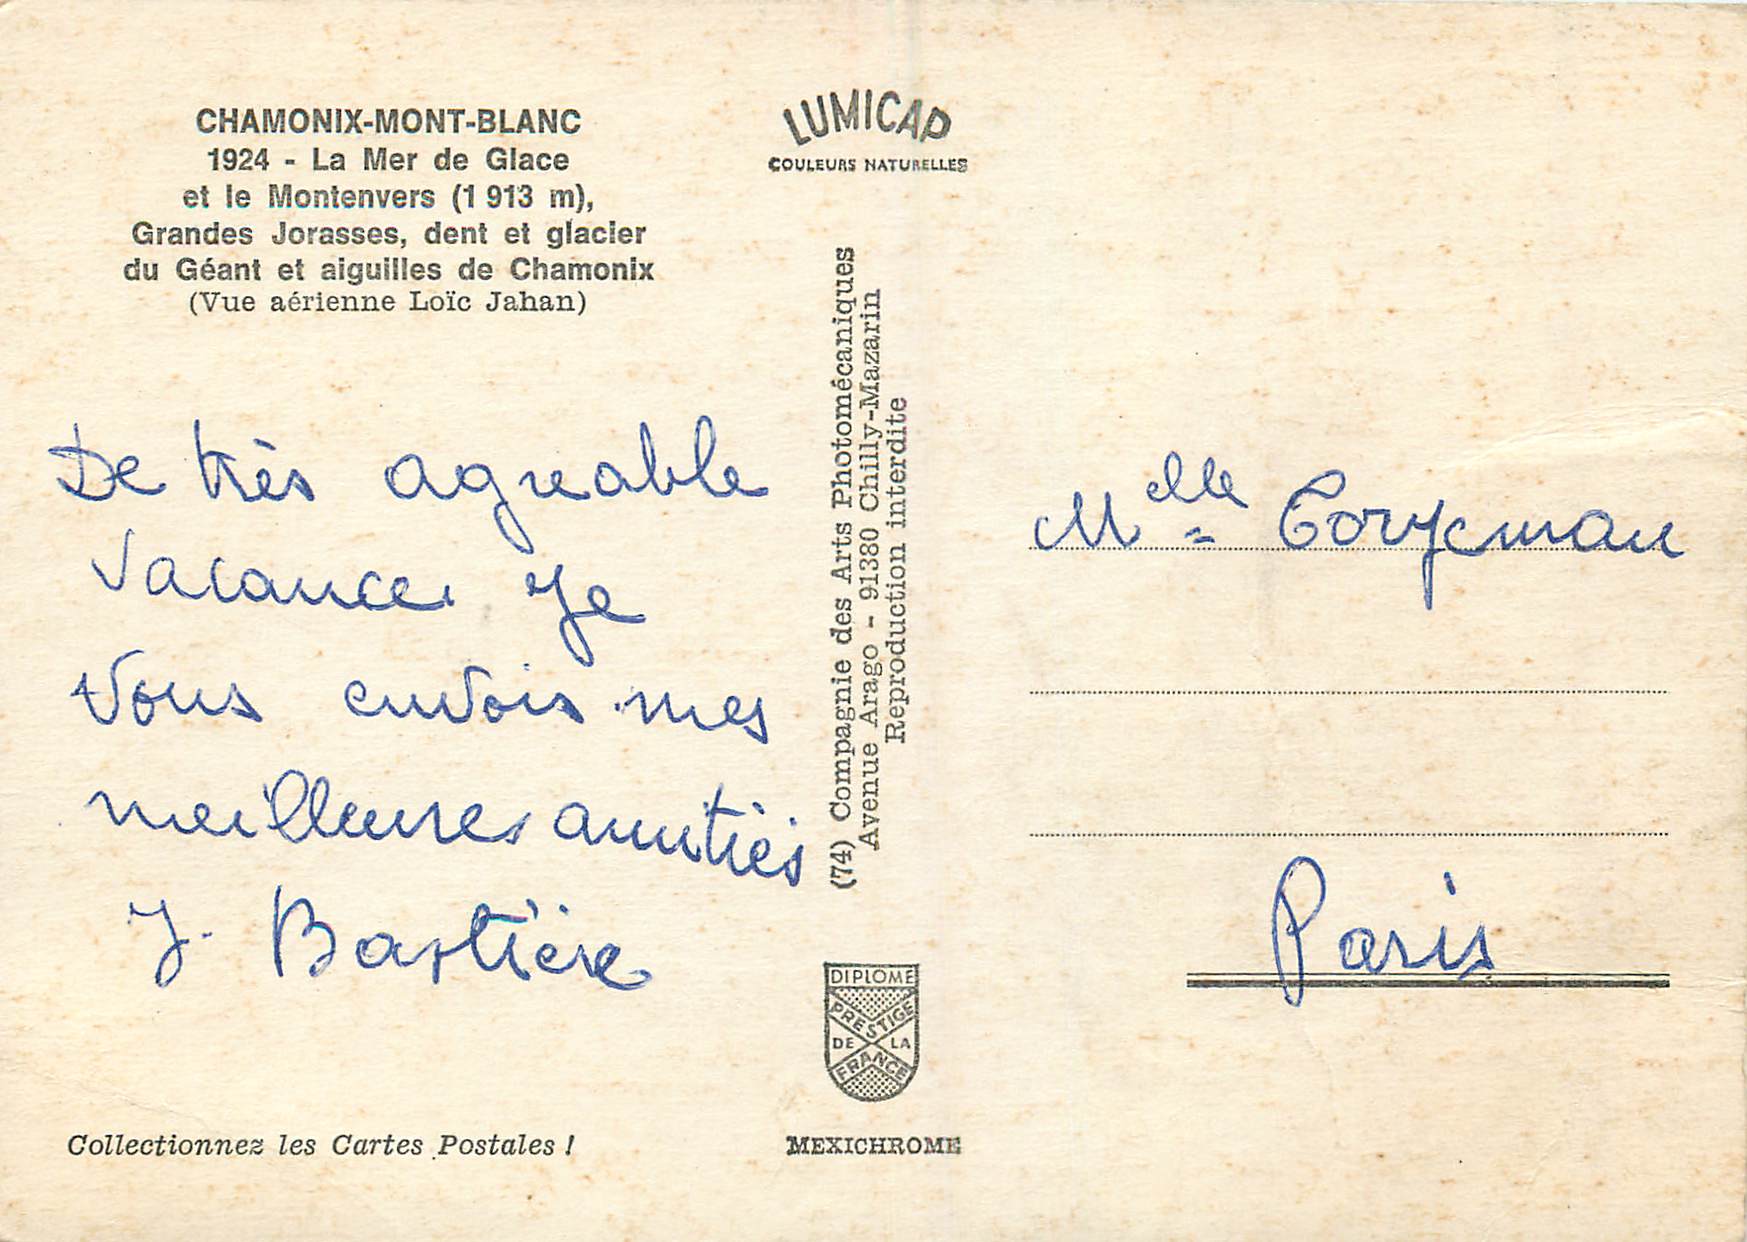 CHAMONIX-MONT-BLANC
1924 - La Mer de Glace
et le Montenvers (1 913 m),
Grandes Jorasses, dent et glacier
du Géant et aiguilles de Chamonix
(Vue aérienne Loïc Jahan)
De très agreable
vacances Je
vous envois mes
meilleures amitiés
J. Bastière
Collectionnez les Cartes Postales !
LUMICAP
COULEURS NATURELLES
(74) Compagnie des Arts Photomécaniques
Avenue Arago - 91380 Chilly-Mazarin
Reproduction interdite
DIPLOME
PRESTIGE
DE LA
FRANCE
MEXICHROME
Melle
Paris